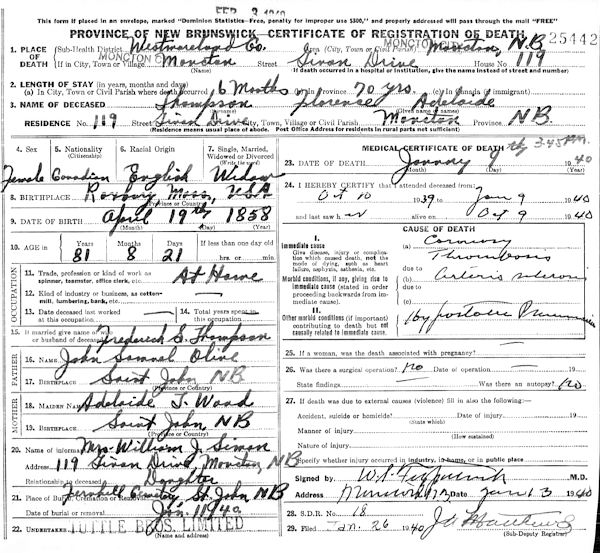 FEB 3 1940
This form if placed in an envelope, marked "Dominion Statistics—Free, penalty for improper use $300," and properly addressed will pass through the mail "FREE"
PROVINCE OF NEW BRUNSWICK—CERTIFICATE OF REGISTRATION OF DEATH
25442
1. PLACE OF DEATH
Sub-Health District Westmoreland Co. (City, Town or Civil Parish) Moncton, N.B
MONCTON
If in City, Town or Village Moncton Street Givan Drive House No 119
(Name) If death occurred in a hospital or institution, give the name instead of street and number)
2. LENGTH OF STAY (in years, months and days)
(a) In City, Town or Civil Parish where death occurred 6 Months Province 70 yrs. Canada (if immigrant)
3. NAME OF DECEASED Thompson Florence Adelaide
(Surname) (Given name)
RESIDENCE No. 119 Street Givan Drive City, Town, Village or Civil Parish Moncton Province N.B.
(Residence means usual place of abode. Post Office Address for residents in rural parts not sufficient)
4. Sex 5. Nationality (Citizenship) 6. Racial Origin 7. Single, Married, Widowed or Divorced (Write the word)
Female Canadian English Widow
8. BIRTHPLACE Roxbury Mass, U.S.A
(Province or Country)
9. DATE OF BIRTH April 19th 1858
(Month) (Day) (Year)
10. AGE in Years Months Days If less than one day
81 8 21 hrs. or min.
OCCUPATION
11. Trade, profession or kind of work as spinner, teamster, office clerk, etc. At Home
12. Kind of industry or business, as cotton-mill, lumbering, bank, etc.
13. Date deceased last worked at this occupation
14. Total years spent in this occupation
15. If married give name of husband or wife of deceased Frederick S. Thompson
FATHER
16. NAME John Samuel Olive
17. BIRTHPLACE Saint John NB
(Province or Country)
MOTHER
18. MAIDEN NAME Adelaide J. Wood
19. BIRTHPLACE Saint John NB
(Province or Country)
20. Name of informant Mrs. William J. Simon
Address 119 Givan Drive, Moncton, NB
Relationship to deceased Daughter
21. Place of Burial, Cremation or Removal Fernhill Cemetery St. John NB
Date of burial or removal Jan. 11 1940
22. UNDERTAKER TUTTLE BROS. LIMITED
MEDICAL CERTIFICATE OF DEATH
3.45 P.M.
23. DATE OF DEATH January 9 1940
(Month) (Day) (Year)
24. I HEREBY CERTIFY that I attended deceased from:
Oct 10 1939 to Jan 9 1940
and last saw h er alive on Oct 9 1940
CAUSE OF DEATH
I.
Immediate cause
Give disease, injury or complication which caused death, not the mode of dying, such as heart failure, asphyxia, asthenia, etc.
(a) Coronary Thrombosis
due to
Morbid conditions, if any, giving rise to immediate cause (stated in order proceeding backwards from immediate cause).
(b)
due to
(c)
II.
Other morbid conditions (if important) contributing to death but not causally related to immediate cause.
Hypostatic Pneumonia
25. If a woman, was the death associated with pregnancy?
26. Was there a surgical operation? no Date of operation 19
State findings Was there an autopsy? no
27. If death was due to external causes (violence) fill in also the following:—
Accident, suicide or homicide? Date of injury 19
(State which)
Manner of injury
(How sustained)
Nature of injury
Specify whether injury occurred in industry, in home, or in public place
Signed by M.D.
Address Moncton N.B. Date Jan 13 1940
28. S.D.R. No. 18
29. Filed Jan. 26 1940
(Sub-Deputy Registrar)